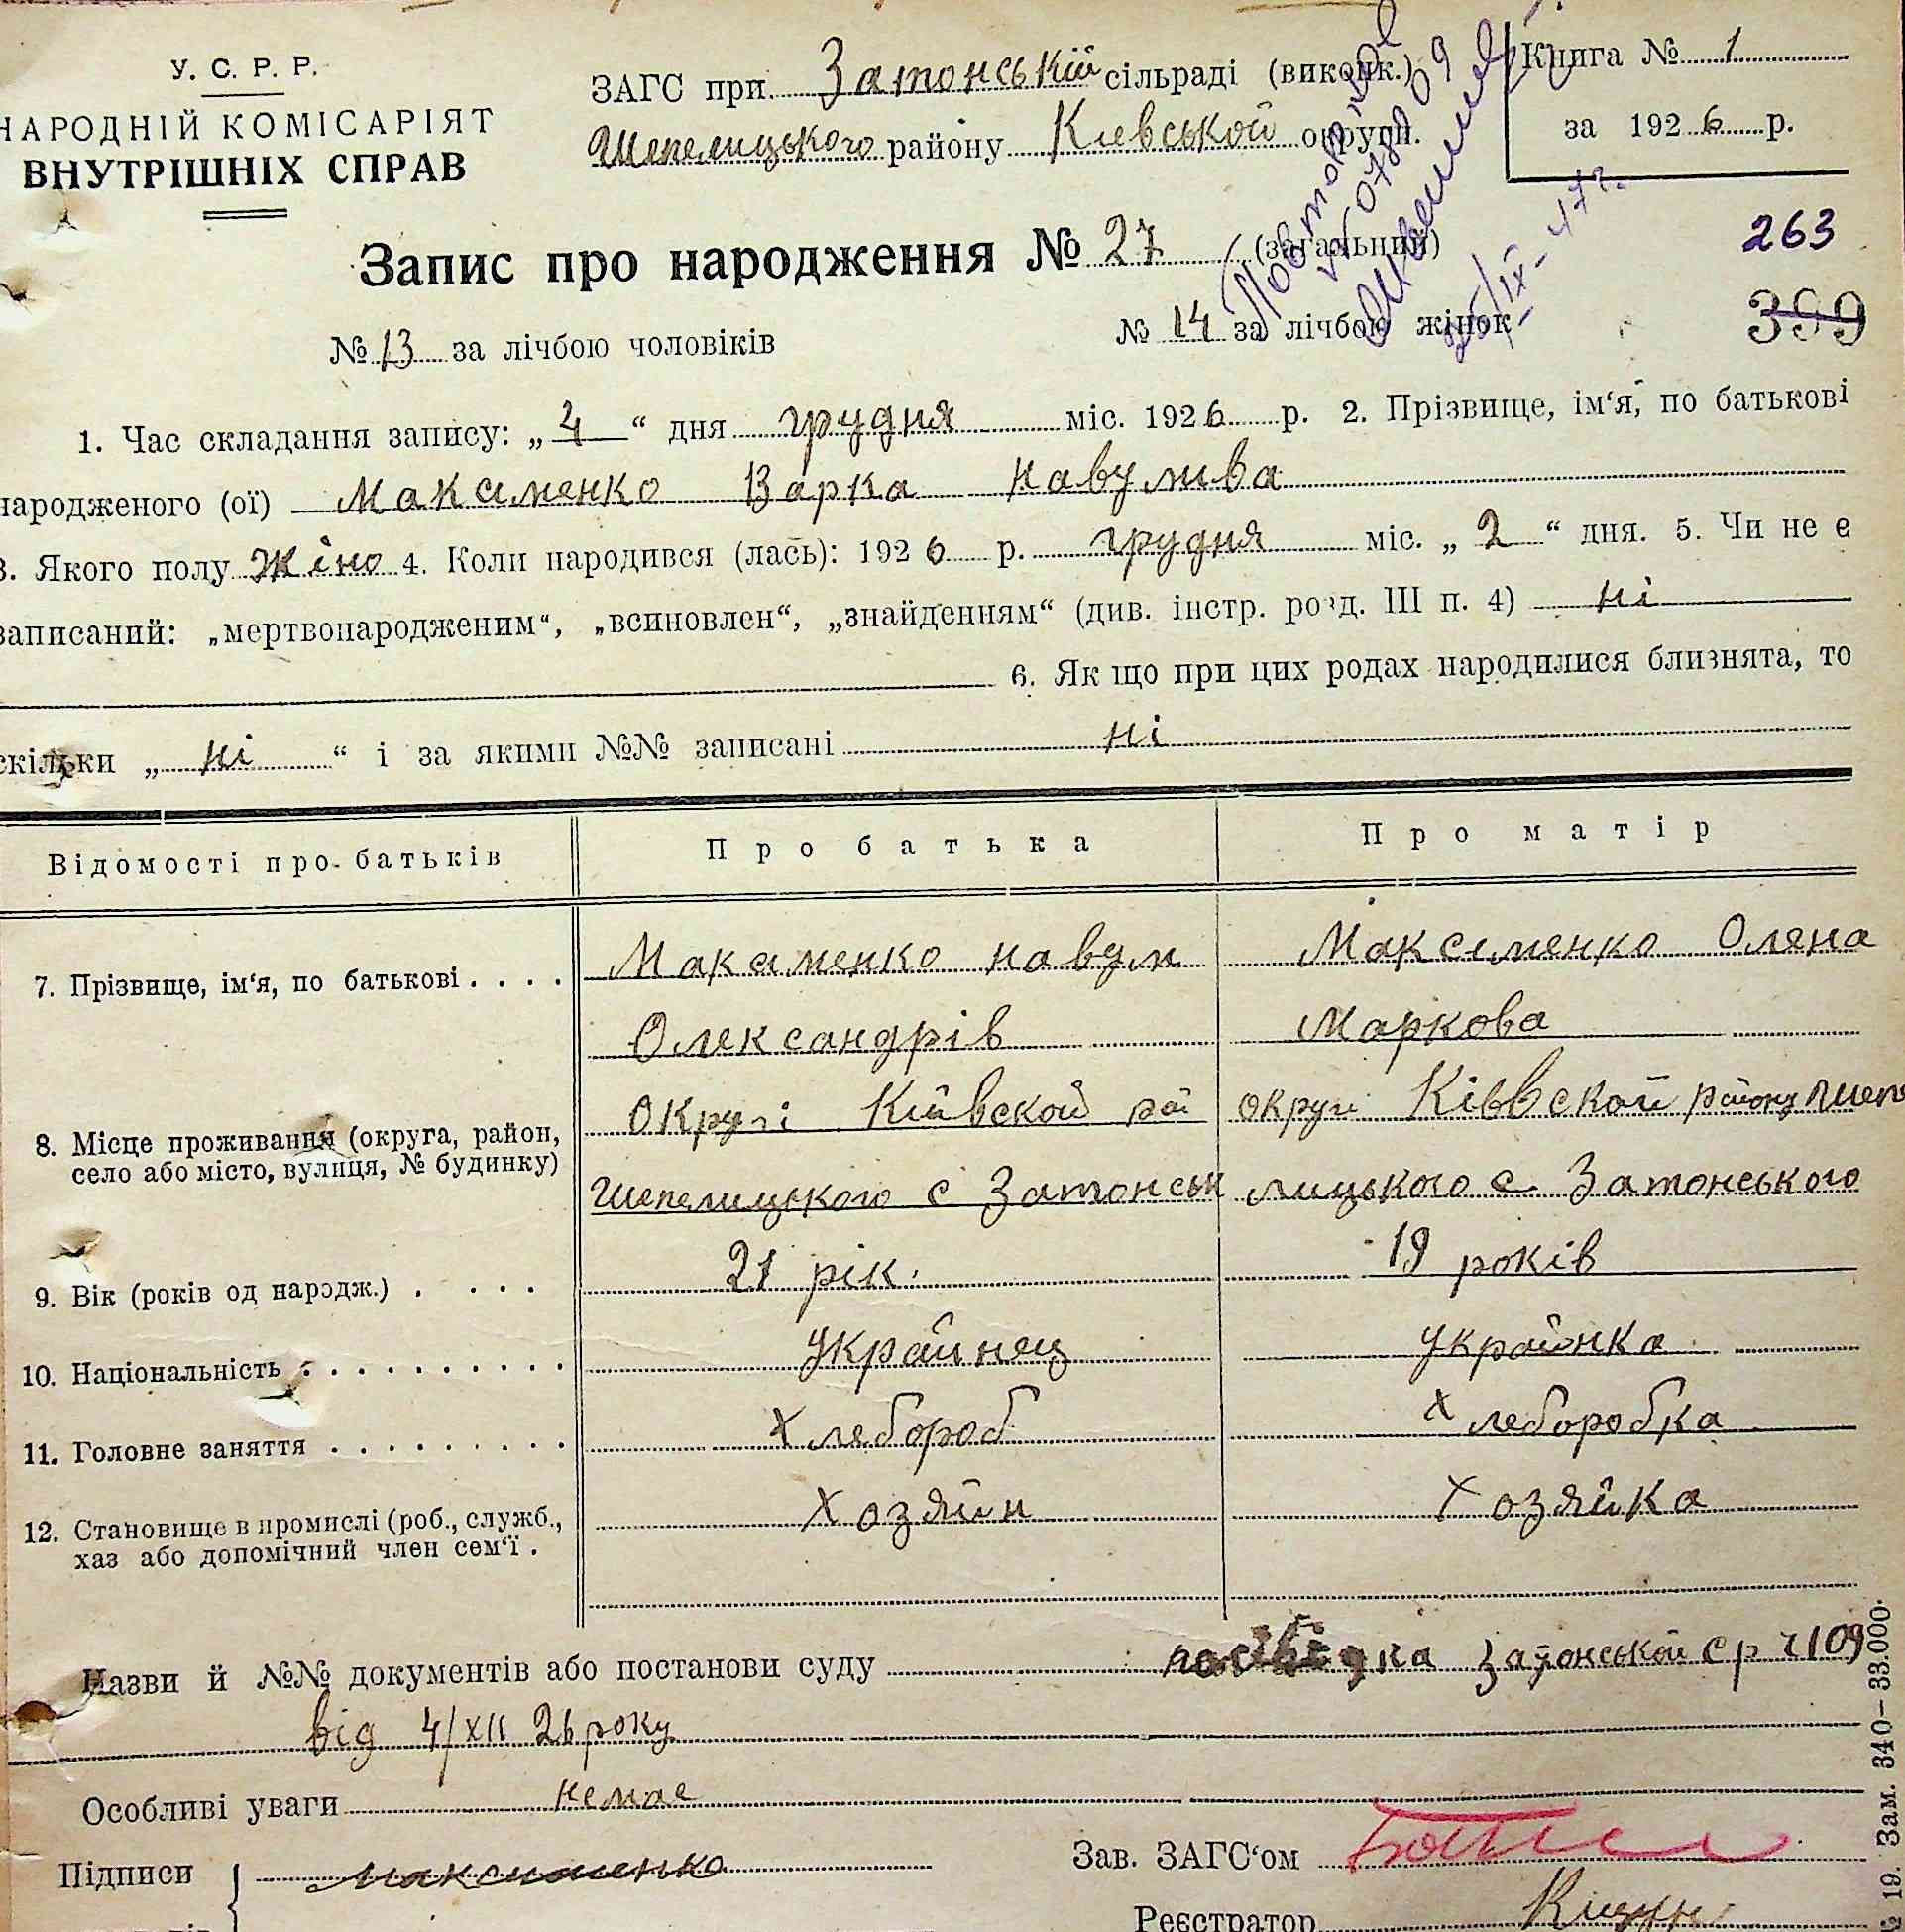 У. С. Р. Р.
НАРОДНІЙ КОМІСАРІЯТ
ВНУТРІШНІХ СПРАВ
ЗАГС при Затонській сільраді (виконк.)
Шепелицького району Киевськой округи.
Книга № 1
за 1926 р.
Запис про народження № 27 (загальний)
263
№ 13 за лічбою чоловіків
№ 14 за лічбою жінок
399
Повторное
25/IX-47г.
1. Час складання запису: „4“ дня грудня міс. 1926 р. 2. Прізвище, ім‘я, по батькові
народженого (ої) Максименко Варка Навумва
3. Якого полу жіно 4. Коли народився (лась): 1926 р. грудня міс. „2“ дня. 5. Чи не є
записаний: „мертвонародженим“, „всиновлен“, „знайденням“ (див. інстр. розд. III п. 4) ні
6. Як що при цих родах народилися близнята, то
скільки „ні“ і за якими №№ записані ні
Відомості про батьків
Про батька
Про матір
7. Прізвище, ім‘я, по батькові . . . .
Максименко Навум
Олександрів
Максименко Оляна
Маркова
8. Місце проживання (округа, район,
село або місто, вулиця, № будинку)
округі Київской рай
Шепелицького с Затонськ
округи Київской району Шепе
лицького с. Затонського
9. Вік (років од народж.) . . . .
21 рік.
19 років
10. Національність . . . . . . . . . .
украйнец
украйонка
11. Головне заняття . . . . . . . . .
хлебороб
хлеборобка
12. Становище в промислі (роб., служб.,
хаз або допомічний член сем‘ї .
хозяйн
хозяйка
Назви й №№ документів або постанови суду посвідка Затонськой с р ч 109
від 4/XII 26 року
Особливі уваги немає
Підписи
Максименко
Зав. ЗАГС‘ом
Реєстратор
19. Зам. 340—33.000.